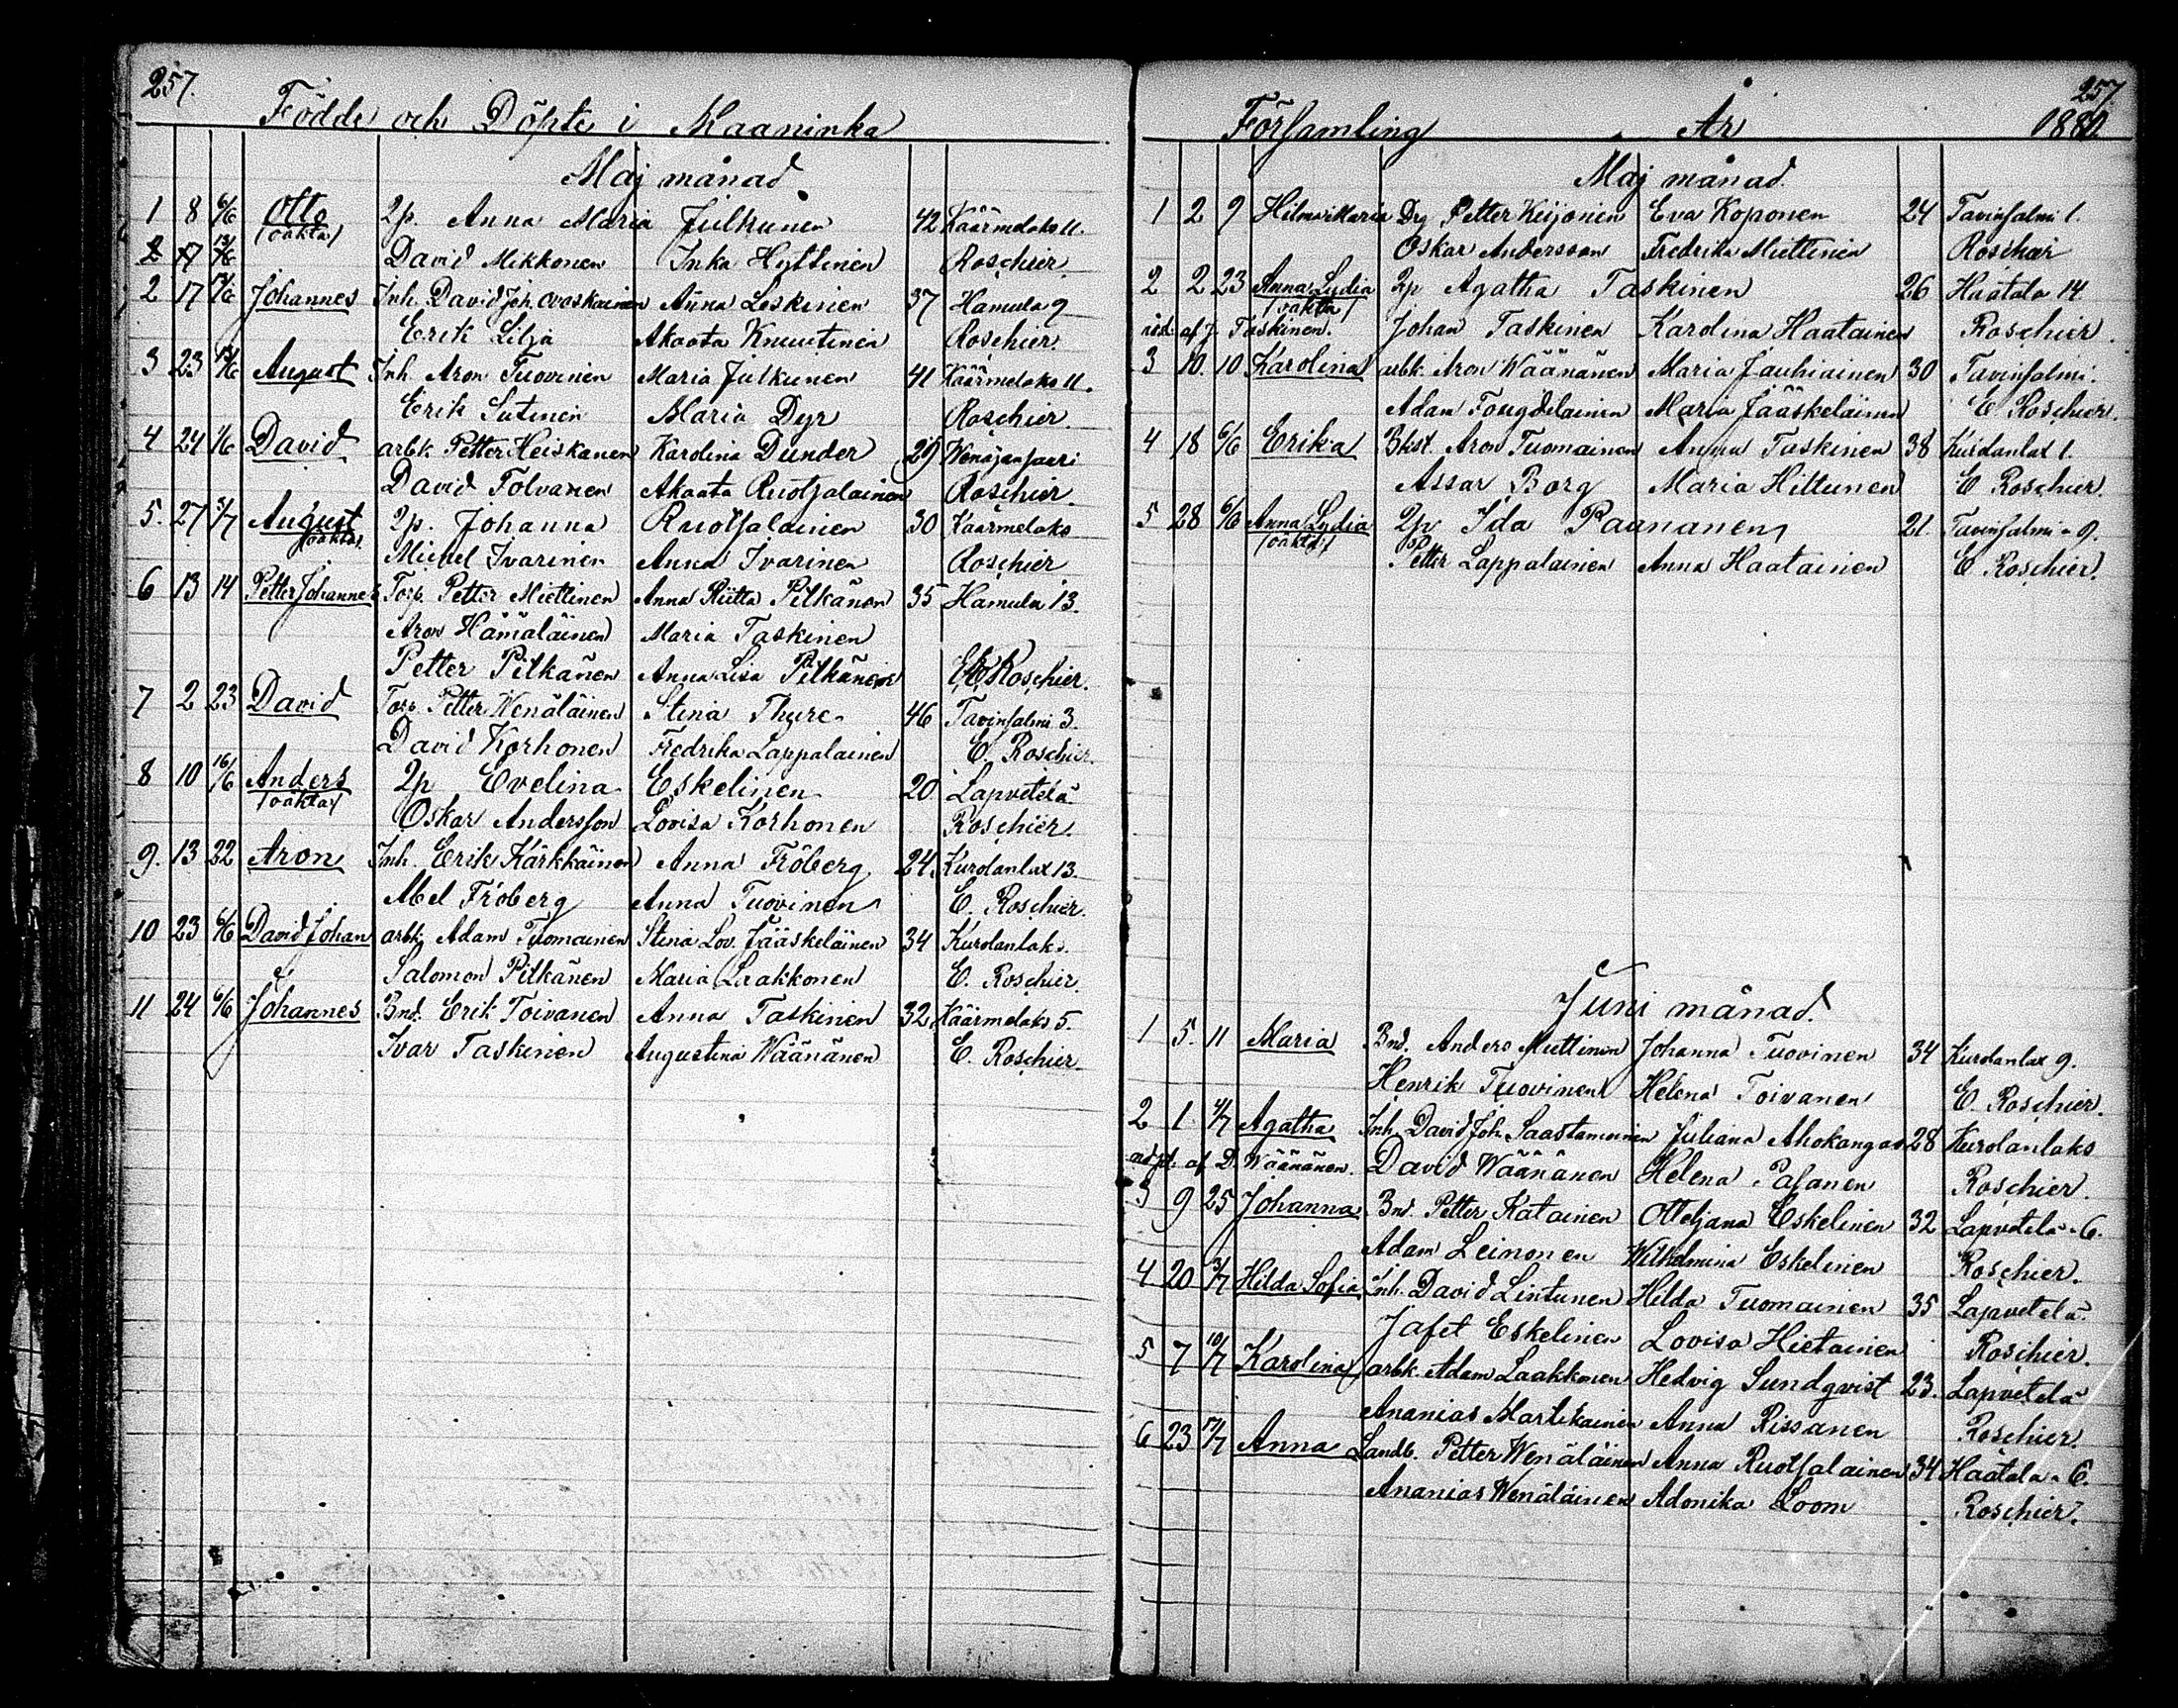 257.
Födde och Döpte i Maaninka
Maj månad
1 8 6/6 Otto 2p. Anna Maria Julkunen 42 Käärmelaks 11.
/oäkta/ David Mikkonen Inka Hyttinen Roschier
2 17 13/6 Johannes Inh. David Joh. Ovaskainen Anna Leskinen 37 Hamula 9
Erik Lilja Akaata Knuutinen Roschier.
3 23 13/6 August Inh. Aron Tuovinen Maria Julkunen 41 Käärmelaks 11.
Erik Sutinen Maria Dyr Roschier.
4 24 1/6 David arbk. Petter Heiskanen Karolina Dunder 29 Wenäjänsaari
David Tolvanen Akaata Ruotsalainen Roschier.
5. 27 3/7 August 2p. Johanna Ruotsalainen 30 Käärmelaks
/oäkta/ Michel Ivarinen Anna Ivarinen Roschier
6 13 14 Petter Johannes Torp. Petter Miettinen Anna Riitta Pitkänen 35 Hamula 13.
Aron Hämäläinen Maria Taskinen
Petter Pitkänen Anna Lisa Pitkänen E. Roschier.
7 2 23 David Torp. Petter Wenäläinen Stina Thure 46 Tavinsalmi 3.
David Korhonen Fredrika Lappalainen E. Roschier.
8 10 16/6 Anders 2p Evelina Eskelinen 20 Lapvetelä
/oäkta/ Oskar Andersson Lovisa Korhonen Roschier.
9. 13 22 Aron Inh. Erik Kärkkäinen Anna Fröberg 24 Kurolanlax 13.
Abel Fröberg Anna Tuovinen E. Roschier.
10 23 6/6 David Johan arbk. Adam Tuomainen Stina Lov. Jääskeläinen 34 Kurolanlaks.
Salomon Pitkänen Maria Laakkonen E. Roschier.
11 24 6/6 Johannes Bnd. Erik Toivanen Anna Taskinen 32 Käärmelaks 5.
Ivar Taskinen Augustina Wäänänen E. Roschier.
257.
Församling År 1880.
Maj månad.
1 2 9 Hilma Maria Drg Petter Keijonen Eva Koponen 24 Tavinsalmi 1.
Oskar Andersson Fredrika Miettinen Roschier
2 2 23 Anna Lydia 2p Agatha Taskinen 26 Haatala 14
/oäkta/
af J. Taskinen. Johan Taskinen Karolina Haatainen Roschier.
3 10. 10 Karolina arbk. Aron Wäänänen Maria Jauhiainen 30 Tavinsalmi.
Adam Maria Jääskeläinen E. Roschier.
4 18 6/6 Erika Bkst. Aron Tuomainen Anna Taskinen 38 Kurolanlax 1.
Assar Borg Maria Hiltunen E. Roschier.
5 28 6/6 Anna Lydia 2p Ida Paananen 21. Tavinsalmi 9.
/oäkta/ Petter Lappalainen Anna Haatainen E. Roschier.
Juni månad.
1 5. 11 Maria Bnd. Anders Miettinen Johanna Tuovinen 34 Kurolanlax 9.
Henrik Tuovinen Helena Toivanen E. Roschier.
2 1. 4/7 Agatha Inh. David Joh. Saastamoinen Juliana Ahokangas 28 Kurolanlaks
adpt. af D. Wäänänen. David Wäänänen Helena Pasanen Roschier.
3 9 25 Johanna Bnd. Petter Katainen Otteljana Eskelinen 32 Lapvetelä 6.
Adam Leinonen Wilhelmina Eskelinen Roschier.
4 20 3/7 Hilda Sofia Inh. David Lintunen Hilda Tuomainen 35 Lapvetelä
Jafet Eskelinen Lovisa Hietainen Roschier.
5 7 10/7 Karolina arbk. Adam Laakkonen Hedvig Sundqvist 23. Lapvetelä
Ananias Martikainen Anna Rissanen Roschier.
6 23 17/7 Anna Landb. Petter Wenäläinen Anna Ruotsalainen 34 Haatala 6.
Ananias Wenäläinen Adonika Loom Roschier.